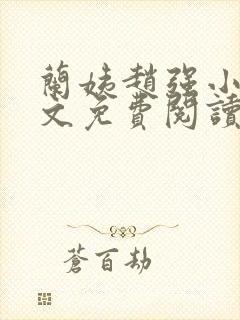 蘭姨趙強小
文免費閱讀
蒼百劫